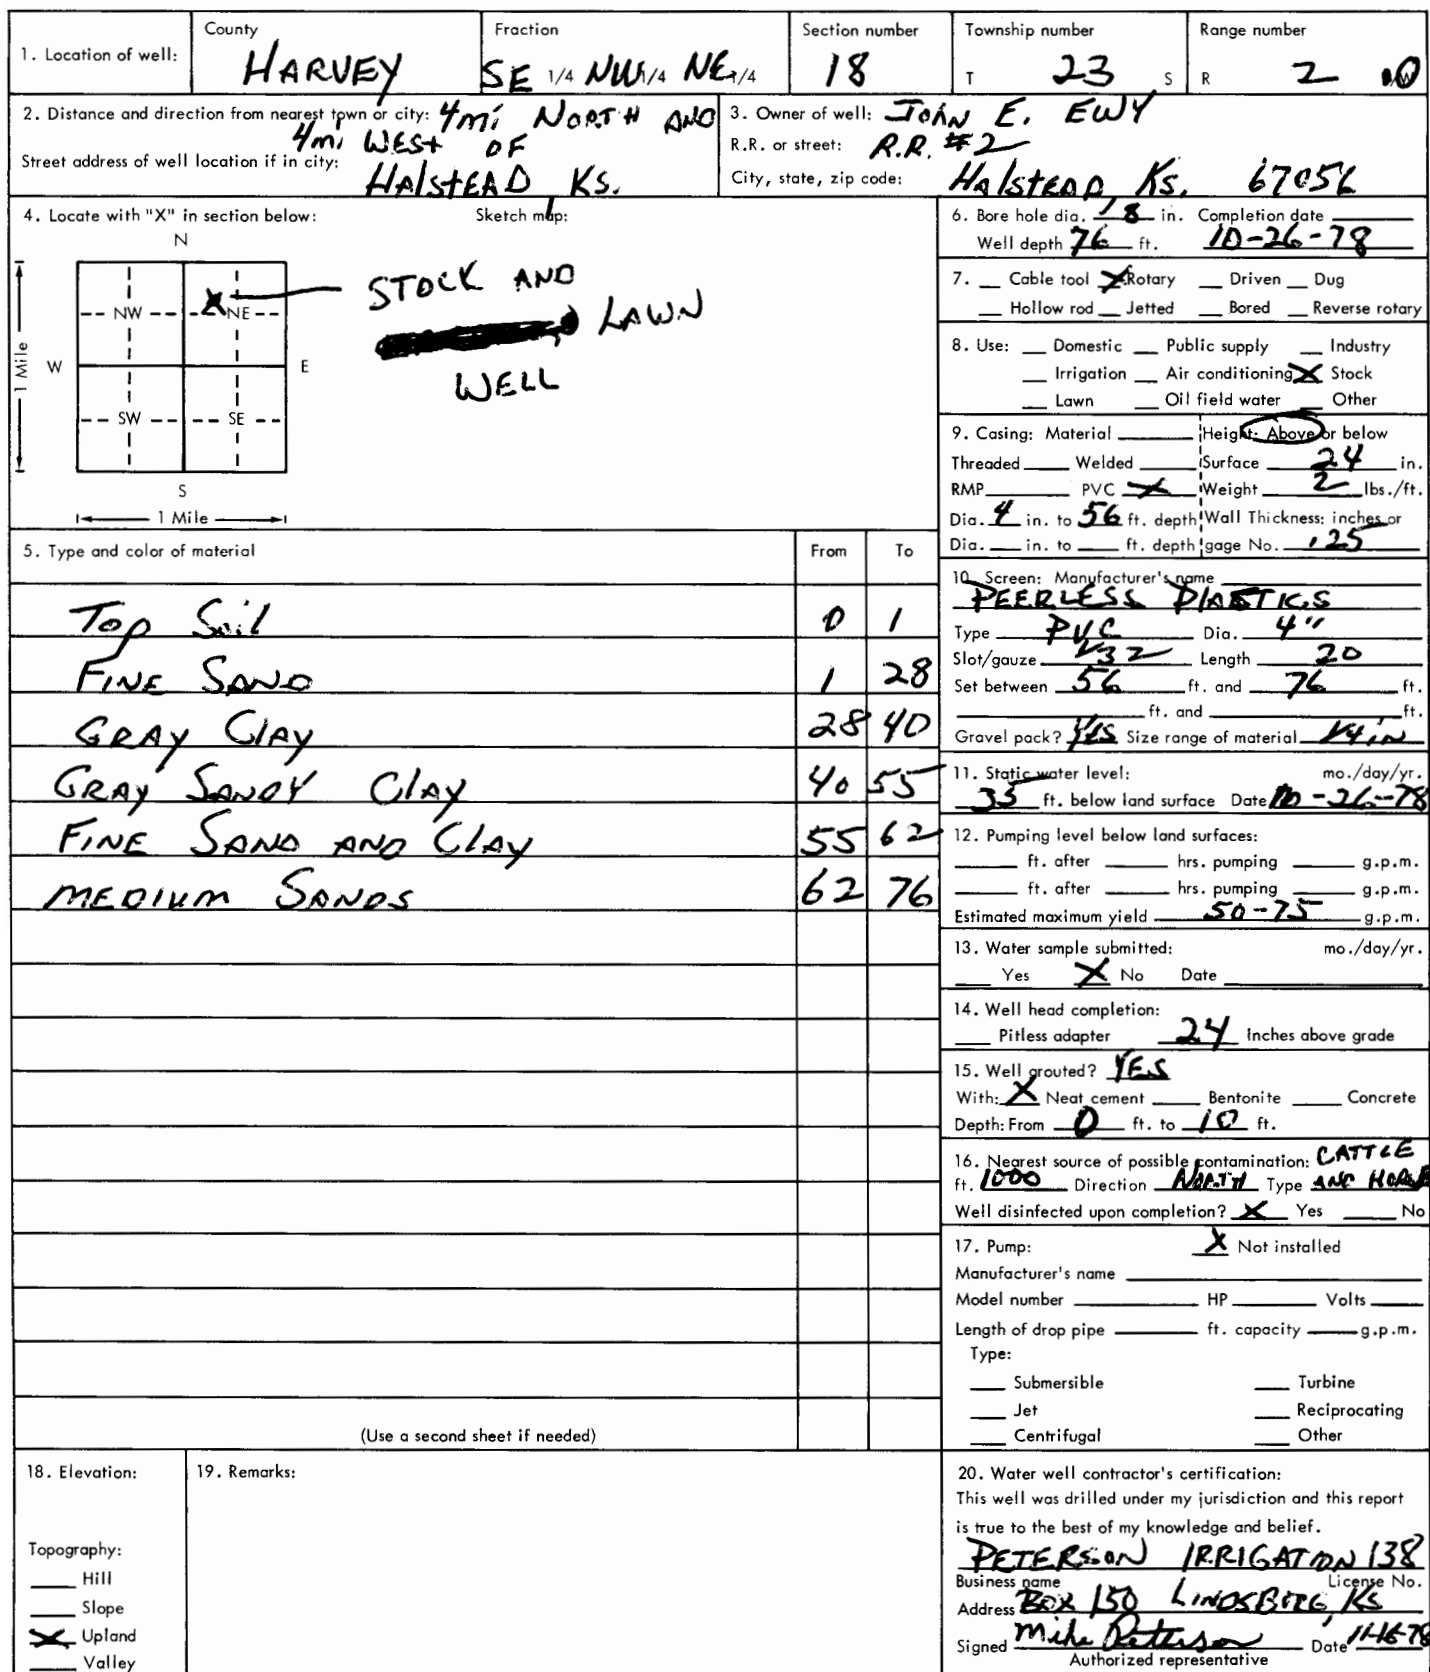 1. Location of well:
County
HARVEY
Fraction
SE 1/4 NW 1/4 NE 1/4
Section number
18
Township number
T 23 S
Range number
R 2 W
2. Distance and direction from nearest town or city: 4mi NORTH AND
4mi WEST OF
Street address of well location if in city:
HAlstEAD Ks.
3. Owner of well: JOHN E. EWY
R.R. or street: R.R. #2
City, state, zip code: HAlstEAD Ks. 67056
4. Locate with "X" in section below:
Sketch map:
N
NW X NE
W E
SW SE
S
1 Mile
1 Mile
STOCK AND
LAWN
WELL
5. Type and color of material From To
Top Soil 0 1
FINE SAND 1 28
GRAY ClAY 28 40
GRAY SANDY ClAY 40 55
FINE SAND AND ClAY 55 62
MEDIUM SANDS 62 76
(Use a second sheet if needed)
6. Bore hole dia. 8 in. Completion date
Well depth 76 ft. 10-26-78
7. Cable tool X Rotary Driven Dug
Hollow rod Jetted Bored Reverse rotary
8. Use: Domestic Public supply Industry
Irrigation Air conditioning X Stock
Lawn Oil field water Other
9. Casing: Material Height: Above or below
Threaded Welded Surface 24 in.
RMP PVC X Weight 2 lbs./ft.
Dia. 4 in. to 56 ft. depth Wall Thickness: inches or
Dia. in. to ft. depth gage No. .125
10. Screen: Manufacturer's name
PEERLESS PlASTICS
Type PVC Dia. 4"
Slot/gauze 1/32 Length 20
Set between 56 ft. and 76 ft.
ft. and ft.
Gravel pack? YES Size range of material 1/4 in
11. Static water level: mo./day/yr.
35 ft. below land surface Date 10-26-78
12. Pumping level below land surfaces:
ft. after hrs. pumping g.p.m.
ft. after hrs. pumping g.p.m.
Estimated maximum yield 50-75 g.p.m.
13. Water sample submitted: mo./day/yr.
Yes X No Date
14. Well head completion:
Pitless adapter 24 Inches above grade
15. Well grouted? YES
With: X Neat cement Bentonite Concrete
Depth: From 0 ft. to 10 ft.
16. Nearest source of possible contamination: CATTLE
ft. 1000 Direction NORTH Type AND HORSE
Well disinfected upon completion? X Yes No
17. Pump: X Not installed
Manufacturer's name
Model number HP Volts
Length of drop pipe ft. capacity g.p.m.
Type:
Submersible Turbine
Jet Reciprocating
Centrifugal Other
18. Elevation:
Topography:
Hill
Slope
X Upland
Valley
19. Remarks:
20. Water well contractor's certification:
This well was drilled under my jurisdiction and this report
is true to the best of my knowledge and belief.
PETERSON IRRIGATION 138
Business name License No.
Address BOX 150 LINDSBORG, KS
Signed Mike Peterson Date 11-16-78
Authorized representative